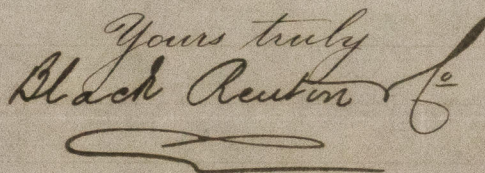 Yours truly
Black Renton & Co